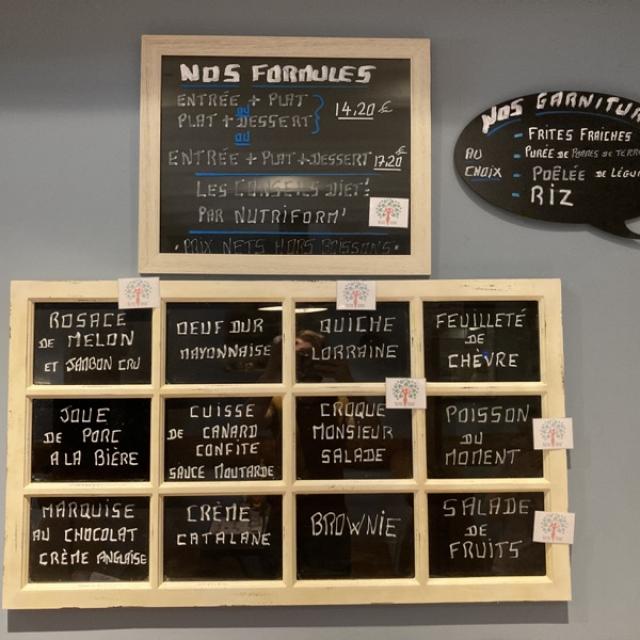 NOS FORMULES
ENTRÉE + PLAT
ou
PLAT + DESSERT
14,20 €
ou
ENTRÉE + PLAT + DESSERT 17,20
LES CONSEILS DIET!
PAR NUTRIFORM'
PRIX NETS HORS BOISSONS
NOS GARNITU
AU CHOIX
- FRITES FRAÎCHES
- PURÉE DE POMMES DE TERR
- POÊLÉE DE LÉGU
- RIZ
ROSACE
DE MELON
ET JAMBON CRU
OEUF DUR
MAYONNAISE
QUICHE
LORRAINE
FEUILLETÉ
DE
CHÈVRE
JOUE
DE PORC
A LA BIÈRE
CUISSE
DE CANARD
CONFITE
SAUCE MOUTARDE
CROQUE
MONSIEUR
SALADE
POISSON
DU
MOMENT
MARQUISE
AU CHOCOLAT
CRÈME ANGLAISE
CRÈME
CATALANE
BROWNIE
SALADE
DE
FRUITS